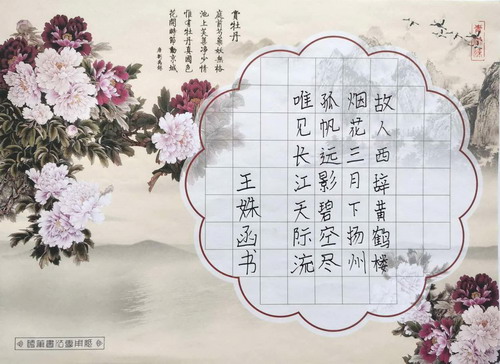 賞牡丹
庭前芍藥妖無格
池上芙蓉淨少情
唯有牡丹真國色
花開時節動京城
唐 劉禹錫
故人西辞黄鹤楼
烟花三月下扬州
孤帆远影碧空尽
唯见长江天际流
王姝函书